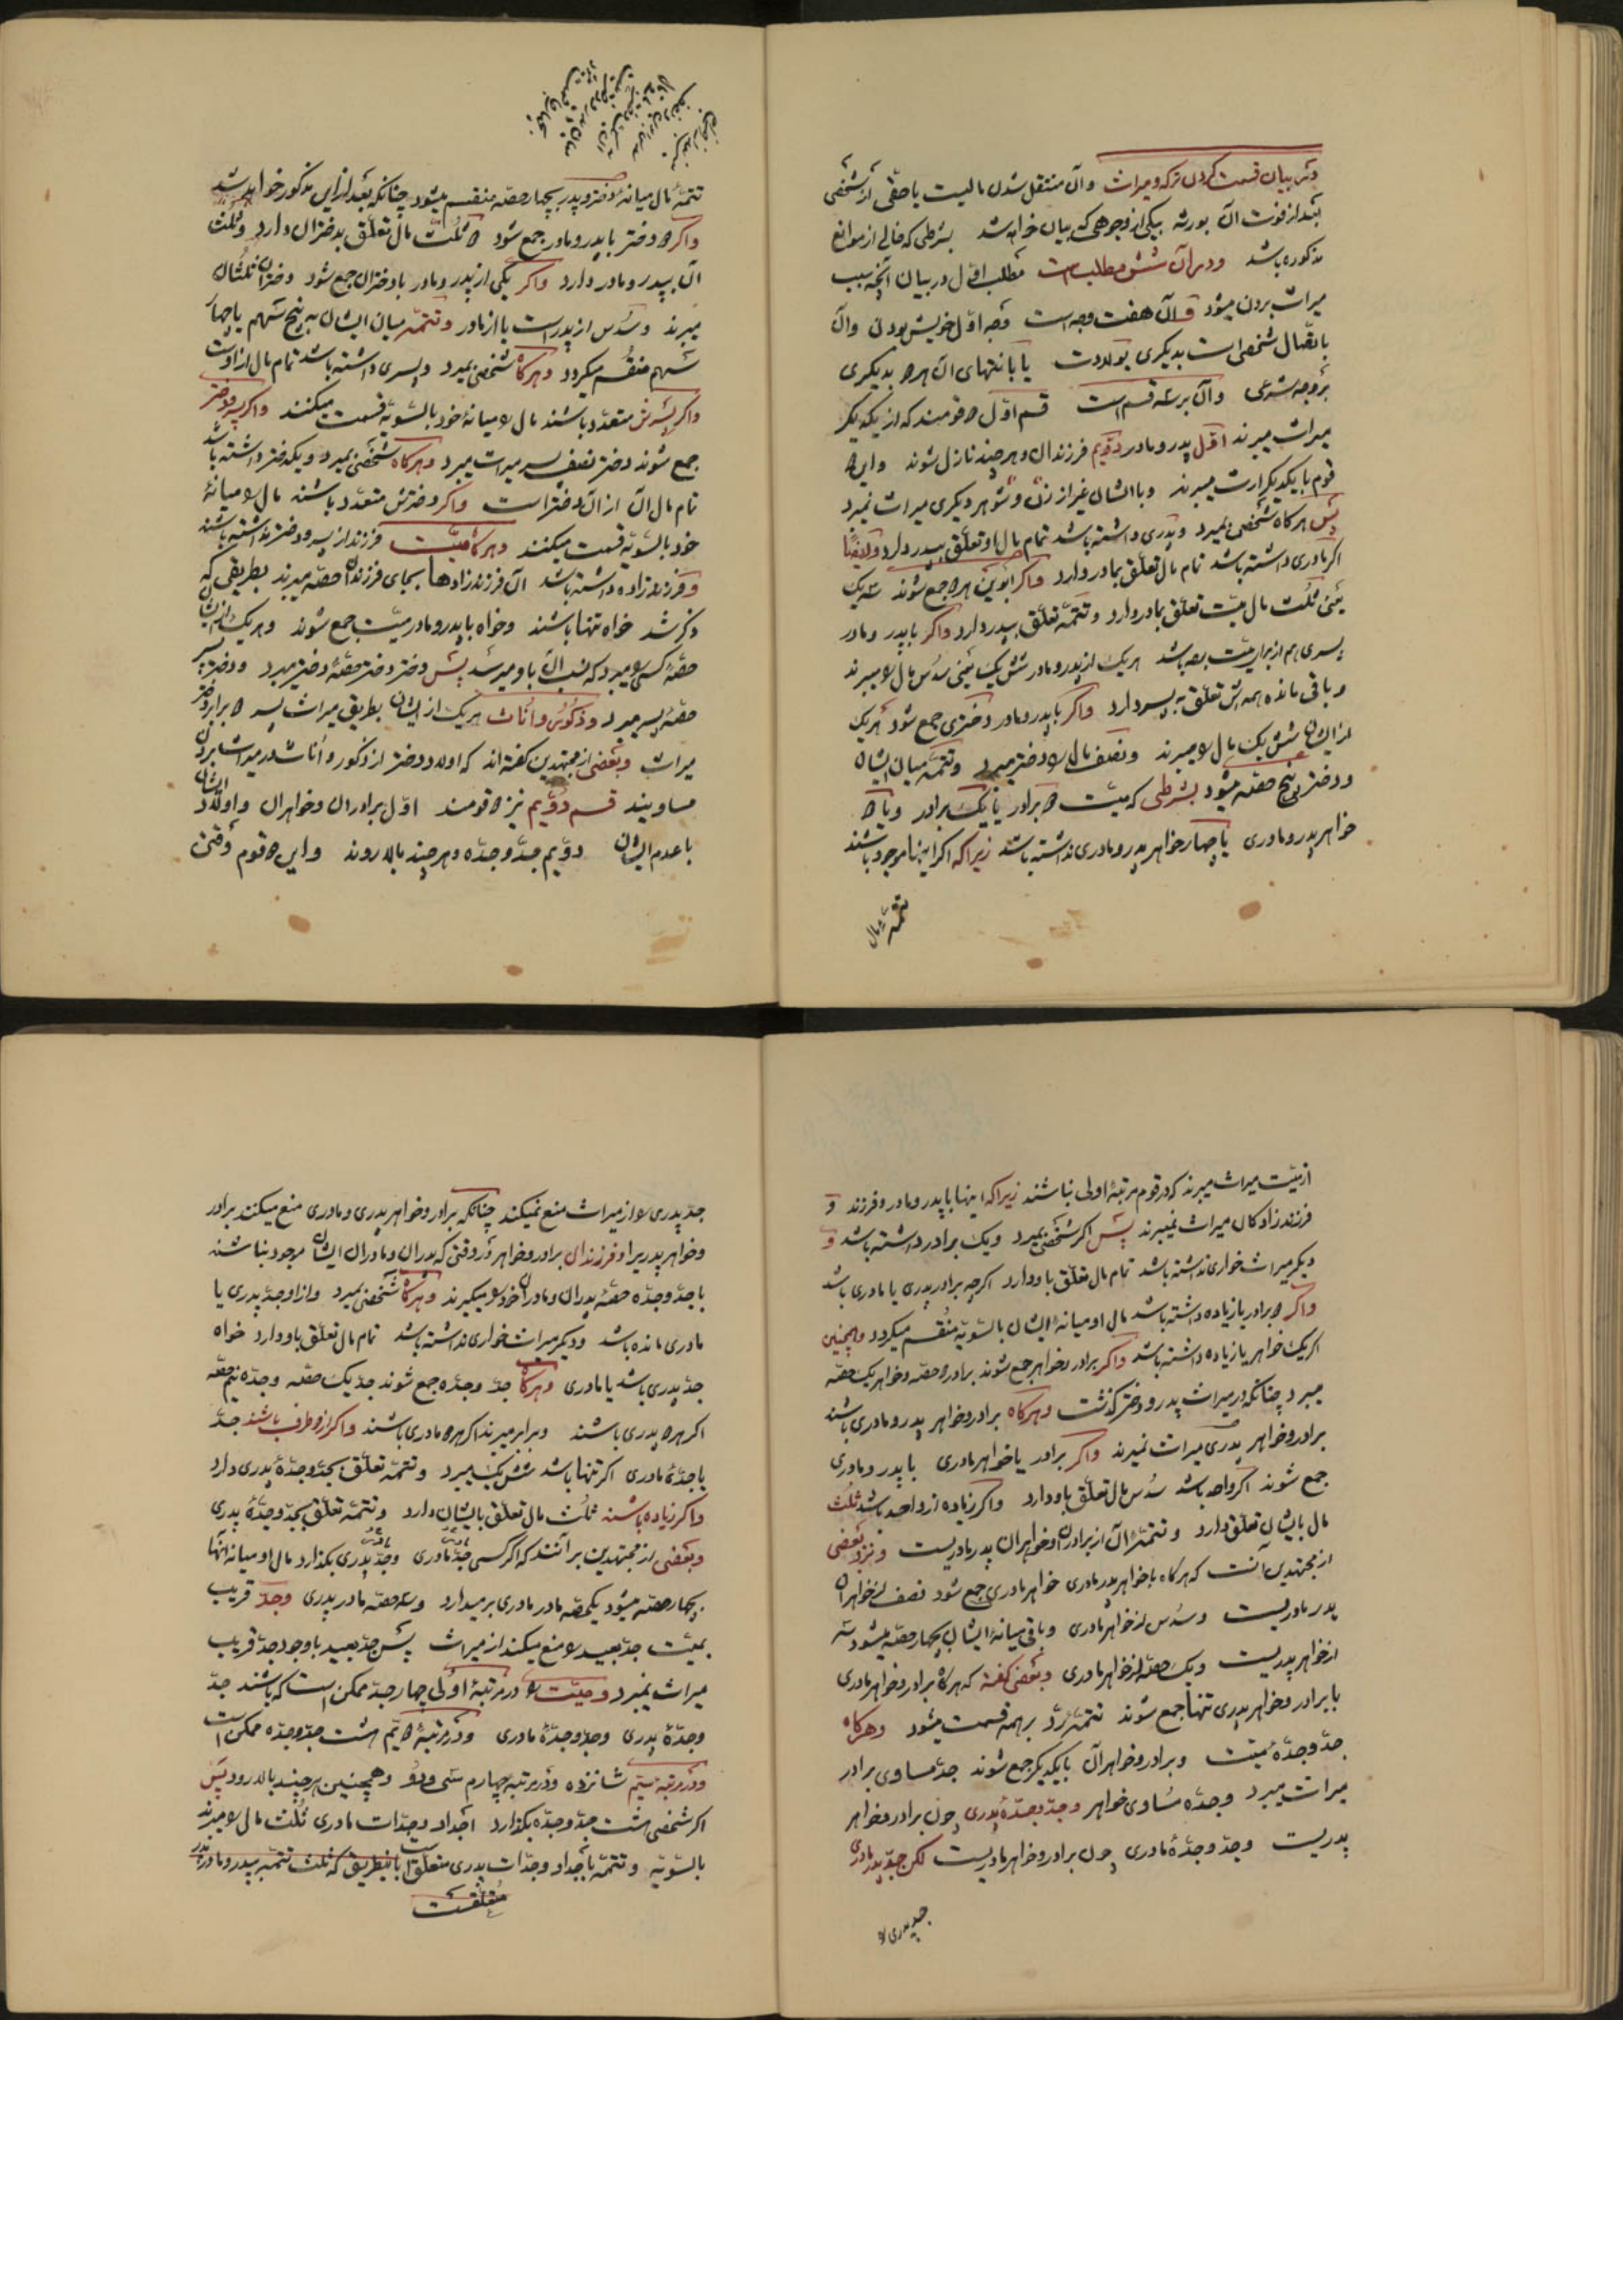 در بیان قسمت کردن ترکه و میراث و آن منتقل شدن مالیست یا حقّی از شخصی
بعد از فوت آن بورثه بیکی از وجوهی که بیان خواهد شد بشرطی که خالی از موانع
مذکوره باشد و در آن شش مطلب است مطلب اوّل در بیان آنچه سبب
میراث بردن میشود و آن هفت وجه است وجه اوّل خویش بودن و آن
باتصال شخصی است بدیگری بولادت یا بانتهای آن هر دو بدیگری
بروجه شرعی و آن بر سه قسم است قسم اوّل دو قومند که از یکدیگر
میراث میبرند اوّل پدر و مادر دویّم فرزندان و هر چند نازل شوند و این دو
قوم با یکدیگر ارث میبرند و با ایشان غیر از زن و شوهر دیگری میراث نمیبرد
پس هرگاه شخصی بمیرد و پدری داشته باشد تمام مال او تعلّق بپدر دارد و ایضاً
اگر مادری داشته باشد تمام مال تعلّق بمادر دارد و اگر ابوین هر دو جمع شوند سه یک
یعنی ثلث مال میّت تعلّق بمادر دارد و تتمّه تعلّق بپدر دارد و اگر با پدر و مادر
پسری هم از برای میّت بوده باشد هر یک از پدر و مادر شش یک یعنی سدس مال را میبرند
و باقی مانده همه‌اش تعلّق به پسر دارد و اگر با پدر و مادر دختری جمع شود هر یک
از ایشان شش یک مال را میبرند و نصف مال را دختر میبرد و تتمّه میان ایشان
و دختر پنج حصّه میشود بشرطی که میّت دو برادر یا یک برادر و یا دو
خواهر پدر و مادری یا چهار خواهر پدر و مادری نداشته باشد زیرا که اگر اینها موجود باشند
تتمّهٔ مال
تتمّهٔ مال میانهٔ دختر و پدر بچهار حصّه منقسم میشود چنانکه بعد از این مذکور خواهد شد
و اگر دو دختر با پدر و مادر جمع شود دو ثلث مال تعلّق بدختران دارد و ثلث
آن بپدر و مادر دارد و اگر یکی از پدر و مادر با دختران جمع شود دختران ثلثان
میبرند و سدس از پدر است یا از مادر و تتمّه میان ایشان به پنج سهم یا چهار
سهم منقسم میگردد و هرگاه شخصی بمیرد و پسری داشته باشد تمام مال از اوست
و اگر پسرش متعدّد باشند مال را میانهٔ خود بالسّویّه قسمت میکنند و اگر پسر و دختر
جمع شوند دختر نصف پسر میراث میبرد و هرگاه شخصی بمیرد و یکدختر داشته باشد
تمام مال آن از آن دختر است و اگر دخترش متعدّد باشند مال را میانهٔ
خود بالسّویّه قسمت میکنند و هرگاه میّت فرزند از پسر و دختر نداشته باشند
و فرزند زاده داشته باشد آن فرزند زادها بجای فرزندان حصّه میبرند بطریقی که
ذکر شد خواه تنها باشند و خواه با پدر و مادر میّت جمع شوند و هر یک از ایشان
حصّهٔ کسی را میبرد که نسب آن باو میرسد پس دختر دختر حصّهٔ دختر میبرد و دختر پسر
حصّهٔ پسر میبرد و ذکور و اناث هر یک از ایشان بطریق میراث پسر دو برابر دختر
میراث و بعضی از مجتهدین گفته‌اند که اولاد دختر از ذکور و اناث در میراث بردن
مساویند قسم دویّم نیز دو قومند اوّل برادران و خواهران و اولاد ایشان
با عدم ایشان دویّم جدّ و جدّه و هر چند بالا روند و این دو قوم وقتی
از میّت میراث میبرند که دو قوم مرتبهٔ اولی نباشند زیرا که اینها با پدر و مادر و فرزند و
فرزند زادگان میراث نمیبرند پس اگر شخصی بمیرد و یک برادر داشته باشد و
دیگر میراث خواری نداشته باشد تمام مال تعلّق باو دارد اگرچه برادر پدری یا مادری باشد
و اگر دو برادر یا زیاده داشته باشد مال او میانهٔ ایشان بالسّویّه منقسم میگردد و همچنین
اگر یک خواهر یا زیاده داشته باشد و اگر برادر و خواهر جمع شوند برادر دو حصّه و خواهر یک حصّه
میبرد چنانکه در میراث پدر و دختر گذشت و هرگاه برادر و خواهر پدر و مادری باشند
برادر و خواهر پدری میراث نمیبرند و اگر برادر یا خواهر مادری با پدر و مادری
جمع شوند اگر واحد باشد سدس مال تعلّق باو دارد و اگر زیاده از واحد باشد ثلث
مال بایشان تعلّق دارد و تتمّهٔ آن از برادران و خواهران پدر مادریست و نزد بعضی
از مجتهدین آنست که هرگاه با خواهر پدر مادری خواهر مادری جمع شود نصف از خواهران
پدر مادریست و سدس از خواهر مادری و باقی میانهٔ ایشان بچهار حصّه میشود سه
از خواهر پدریست و یک حصّه از خواهر مادری و بعضی گفته که هرگاه برادر و خواهر مادری
با برادر و خواهر پدری تنها جمع شوند تتمّه رد بر همه قسمت میشود و هرگاه
جدّ و جدّهٔ میّت و برادر و خواهر آن با یکدیگر جمع شوند جدّ مساوی برادر
میراث میبرد و جدّه مساوی خواهر و جدّ و جدّهٔ پدری چون برادر و خواهر
پدریست و جدّ و جدّهٔ مادری چون برادر و خواهر مادریست لکن جدّ پدر مادری
جد پدری را
جدّ پدری را از میراث منع نمیکند چنانکه برادر و خواهر پدری و مادری منع میکنند برادر
و خواهر پدریرا و فرزندان برادر و خواهر در وقتی که پدران و مادران ایشان موجود نباشند
با جدّ و جدّه حصّهٔ پدران و مادران خود را میگیرند و هرگاه شخصی بمیرد و از او جدّ پدری یا
مادری مانده باشد و دیگر میراث خواری نداشته باشد تمام مال تعلّق باو دارد خواه
جدّ پدری باشد یا مادری و هرگاه جدّ و جدّه جمع شوند جدّ یک حصّه و جدّه نیم حصّه
اگر هر دو پدری باشند و برابر میبرند اگر هر دو مادری باشند و اگر از دو طرف باشند جدّ
یا جدّهٔ مادری اگر تنها باشد شش یک میبرد و تتمّه تعلّق بجدّ و جدّهٔ پدری دارد
و اگر زیاده باشند ثلث مال تعلّق بایشان دارد و تتمّه تعلّق بجدّ و جدّهٔ پدری
و بعضی از مجتهدین بر آنند که اگر کسی جدّهٔ مادری و جدّهٔ پدری بگذارد مال او میانهٔ آنها
بچهار حصّه میشود یکحصّه مادر مادری بر میدارد و سه حصّه مادر پدری و جدّ قریب
بمیّت جدّ بعید را منع میکند از میراث پس جدّ بعید با وجود جدّ قریب
میراث نمیبرد و میّت را در مرتبهٔ اولی چهار جدّ ممکن است که باشند جدّ
و جدّهٔ پدری و جدّ و جدّهٔ مادری و در مرتبهٔ دویّم هشت جدّ و جدّه ممکن است
و در مرتبهٔ سیّم شانزده و در مرتبه چهارم سی و دو و همچنین هر چند بالا رود پس
اگر شخصی هشت جدّ و جدّه بگذارد اجداد و جدّات مادری ثلث مال را میبرند
بالسّویّه و تتمّه باجداد و جدّات پدری متعلّق است باینطریق که ثلث تتمّه بپدر و مادر پدر
متعلّقست